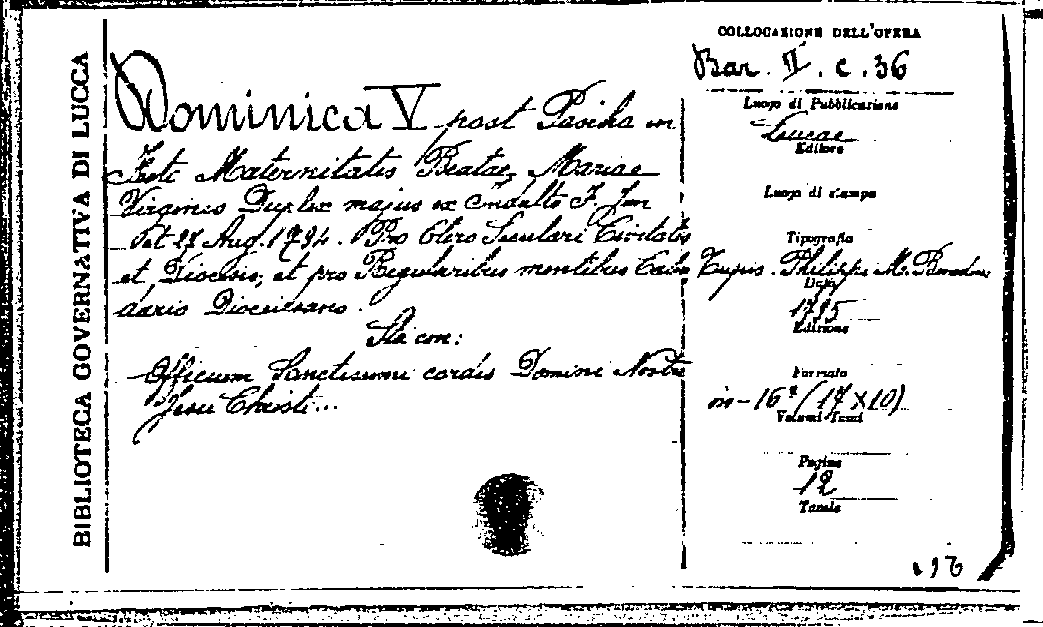 BIBLIOTECA GOVERNATIVA DI LUCCA
Dominica V post Pascha in
Festo Maternitatis Beatae Mariae
Virginis Duplex majus ex Indulto
27 Aug. 1794. Pro Clero Seculari Civitatis
et Diocesis, et pro Regularibus utentibus
dario Diocesano.
Sta con:
Officium Sanctissimi cordis Domini Nostri
Jesu Christi...
COLLOCAZIONE DELL'OPERA
Bar. II. c. 36
Luogo di Pubblicazione
Lucae
Editore
Luogo di stampa
Tipografia
Typis. Philippi M. Benedini
Data
1795
Edizione
Formato
in-16° (17 x 10)
Volumi Tomi
Pagine
12
Tavole